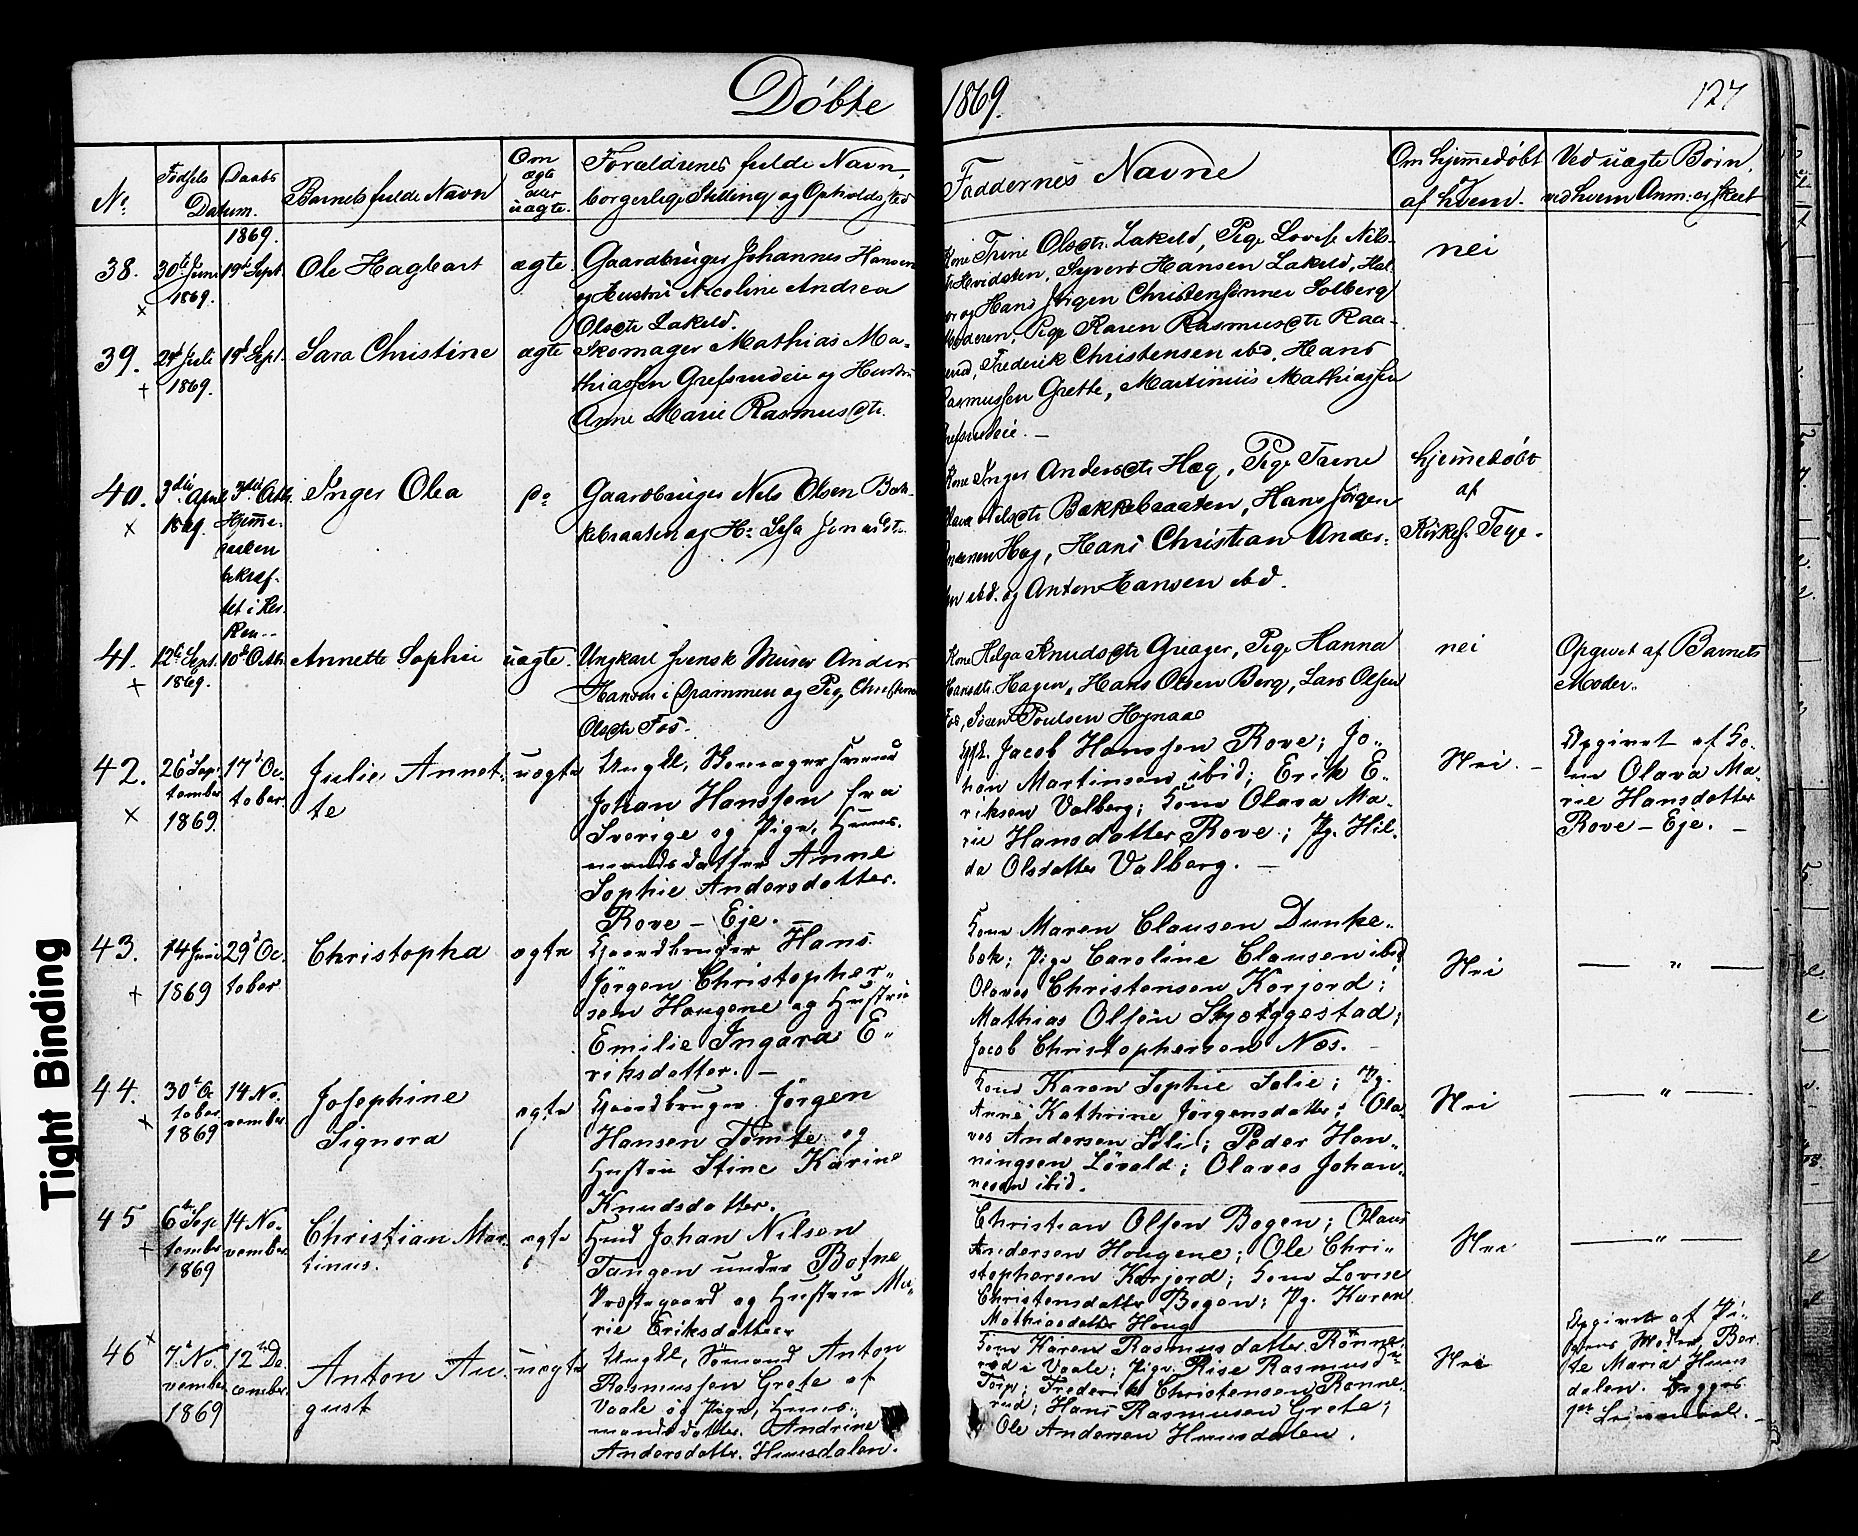 Døbte 1869. 127
No
Fødsels Daabs
Datum.
Barnets fulde Navn
Om
ægte
eller
uægte.
Forældrenes fulde Navn,
borgerlige Stilling og Opholdssted
Faddernes Navne
Om hjemmedøbt
af hvem.
Ved uægte Børn,
ved hvem Anm: er skeet
1869.
38.
30te Juni
1869.
19de Sept.
Ole Hagbart
ægte.
Gaardbruger Johannes Hansen
og Hustru Nicoline Andrea
Olsdtr Lakeld.
Kone Trine Olsdtr. Lakeld, Pige Lovise Nils-
Hansen Lakeld,
og Hans Jørgen Christensønner Solberg
nei
39.
1869.
19de Sept.
Sara Christine
ægte
Skomager Mathias Ma-
thiassen Grefsrudeie og Hustru
Anne Marie Rasmusdtr.
Moderen, Pige Karen Rasmusdtr Raa-
Frederik Christensen ibd, Hans
Rasmussen Grette, Martinius Mathiassen
Grefsrudeie.
40.
3die April
1869.
3die Octb.
Hjemme-
daaben
bekræf-
tet i Kir-
ken.
Inger Olea
Do
Gaardbruger Nils Olsen Bak-
kebraaten og H:
Kone Inger Andersdtr Hæg, Pige Trine
Olava Nilsdtr Bakkebraaten, Hans Jørgen
Andersen Hæg, Hans Christian Ander-
sen ibd. og Anton Hansen ibd.
hjemmedøbt
af
Kirkes. Tege.
41.
12te Sept.
1869.
10de Octb.
Annette Sophie
uægte.
Ungkarl svensk Murer Anders
Hansen i Drammen og Pige Christine
Olsdtr Fos.
Kone Helga Knudsdtr Greager, Pige Hanna
Hansdtr. Hagen, Hans Olsen Berg, Lars Olsen
Fos, Søren Poulsen Hynaae
nei
Opgivet af Barnets
Moder.
42.
26de Sep-
tember
1869.
17de Oc-
tober.
Julie Annet-
te
uægte
Ungkl, Skomagersvend
Johan Hanssen fra
Sverige og Pige, Huus-
mandsdatter Anne
Sophie Andersdatter.
Rove - Eje. -
Jacob Hanssen Rove; Jo-
han Martinsen ibid; Erik E-
riksen Valberg; Kone Olava Ma-
rie Hansdatter Rove; Pg. Hil-
da Olsdatter Valberg. -
Nei. -
Opgivet af Ko-
ne Olava Ma-
rie Hansdatter
Rove - Eje. -
43.
14 Juni
1869
29de Oc-
tober
Christopha
ægte
Gaardbruger Hans
Jørgen Christopher-
sen Hougene og Hustru
Emilie Ingara E-
riksdatter. -
Kone Maren Clausen Dunke-
bek; Pige Caroline Clausen ibid
Olaves Christensen Korjord;
Mathias Olsen Skjøtggestad;
Jacob Christophersen Næs. -
Nei
— " —
44.
30te Oc
tober
1869
14 No-
vember
Josephine
Signora
ægte
Gaardbruger Jørgen
Hansen Tomte og
Hustru Stine Karine
Knudsdatter.
Kone Karen Sophie Solie; Pg.
Anne Kathrine Jørgensdatter; Ola-
ves Andersen Solie; Peder Hen-
ningsen Løvald; Olaves Johan-
nesen ibid.
Nei
— " —
45
6te Sep
tember
1869
14 No-
vember.
Christian Mar-
tinus.
ægte
Hmd Johan Nilsen
Tangen under Botne
Præstegaard og Hustru Ma-
rie Eriksdatter
Christian Olsen Bogen; Olaus
Andersen Hougene; Ole Chri-
stophersen Korjord; Kone Lovise
Christensdatter Bogen; Pg. Karen
Mathiasdatter Houg
Nei
— " —
46
7de No-
vember
1869
12te De-
cember.
Anton Au-
gust
uægte
Ungkl, Sømand Anton
Rasmussen Grete af
Vaale og Pige, Huus-
mandsdatter. Andrine
Andersdatter. Huusdalen.
Kone Karen Rasmusdatter Rønne-
rød i Vaale; Pige Rise Rasmusd.
Torp; Frederik Christensen Rønne-
rud; Hans Rasmusen Grete;
Ole Andersen Huusdalen.
Nei
Opgivet af Pi-
gens Moder, Ber-
te Maria Huus
dalen.
Tight Binding